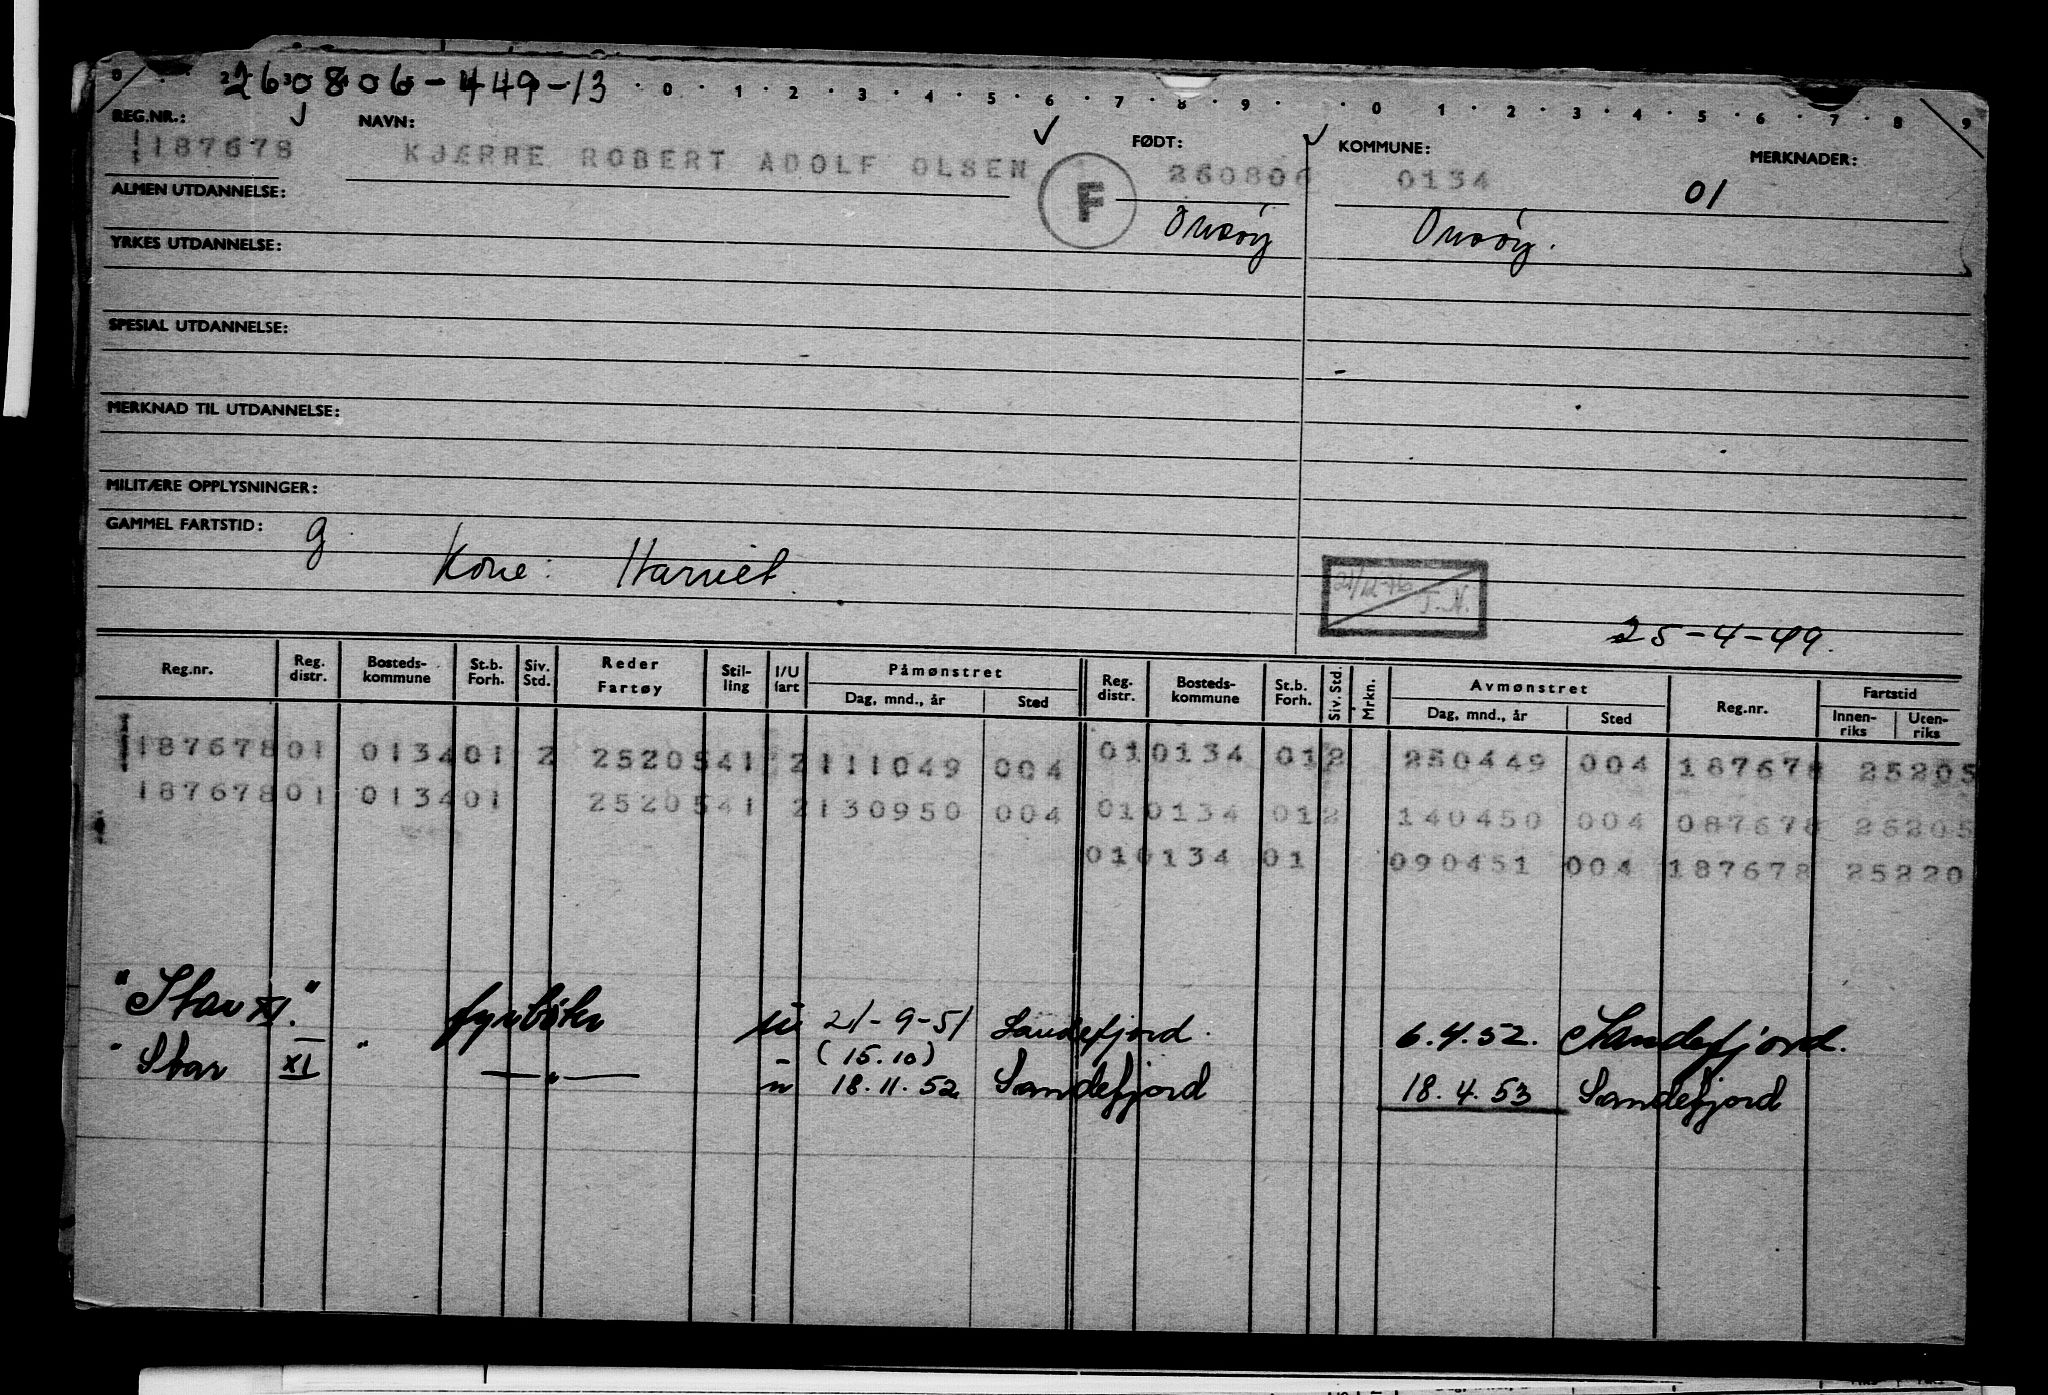 260806-449-13
0 1 2 3 4 5 6 7 8 9 0 1 2 3 4 5 6 7 8 9
REG.NR.: NAVN: FØDT: KOMMUNE: MERKNADER:
187678 KJÆRRE ROBERT ADOLF OLSEN F 260806 0134 01
ALMEN UTDANNELSE: Onsøy Onsøy.
YRKES UTDANNELSE:
SPESIAL UTDANNELSE:
MERKNAD TIL UTDANNELSE:
MILITÆRE OPPLYSNINGER:
GAMMEL FARTSTID: g
Kone: Harriet
T.N.
25-4-49.
Reg.nr. Reg. distr. Bosteds-kommune St.b. Forh. Siv. Std. Reder Fartøy Stil-ling I/U fart Påmønstret Reg. distr. Bosteds-kommune St.b. Forh. Siv. Std. Mrkn. Avmønstret Reg.nr. Fartstid
Dag, mnd., år Sted Dag, mnd., år Sted Innen-riks Uten-riks
187678 01 0134 01 2 25205 41 2 111049 004 01 0134 01 2 250449 004 187678 25205
187678 01 0134 01 25205 41 2 130950 004 01 0134 01 2 140450 004 087678 25205
01 0134 01 090451 004 187678 25220
"Star XI." fyrbøter u 21-9-51 Sandefjord. 6.4.52. Sandefjord.
(15.10)
" Star XI " — " — u 18.11.52 Sandefjord 18.4.53 Sandefjord